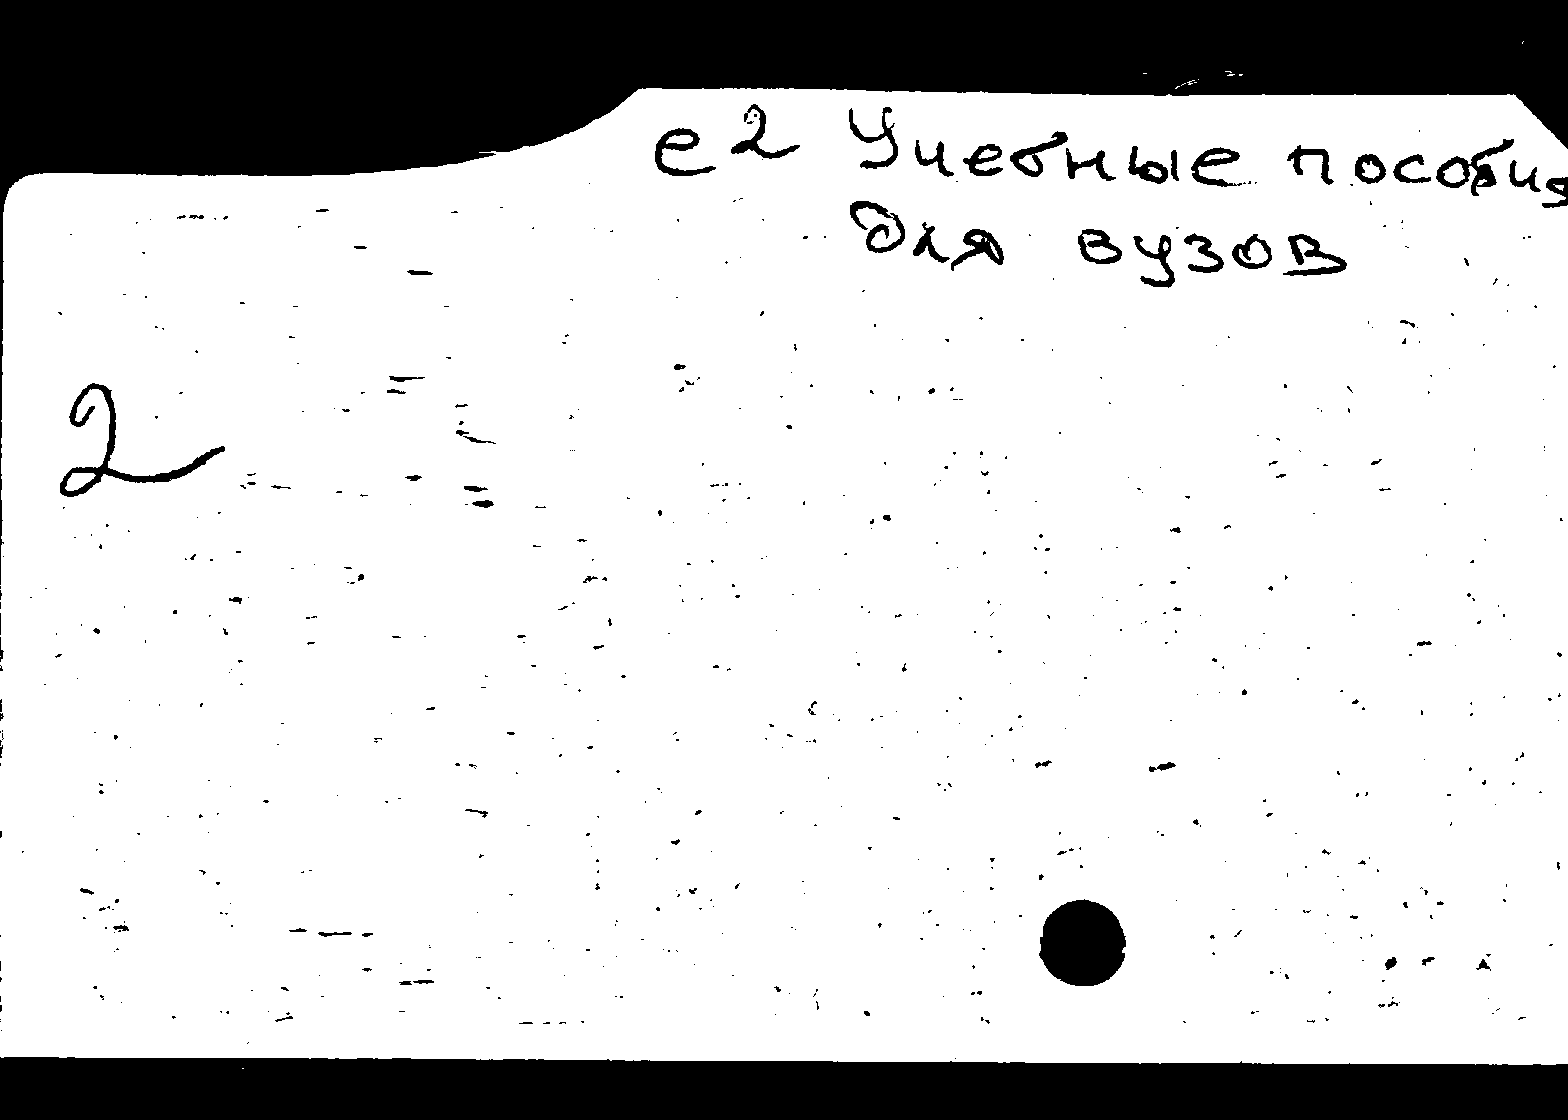 е2 Учебные пособия
для вузов
2